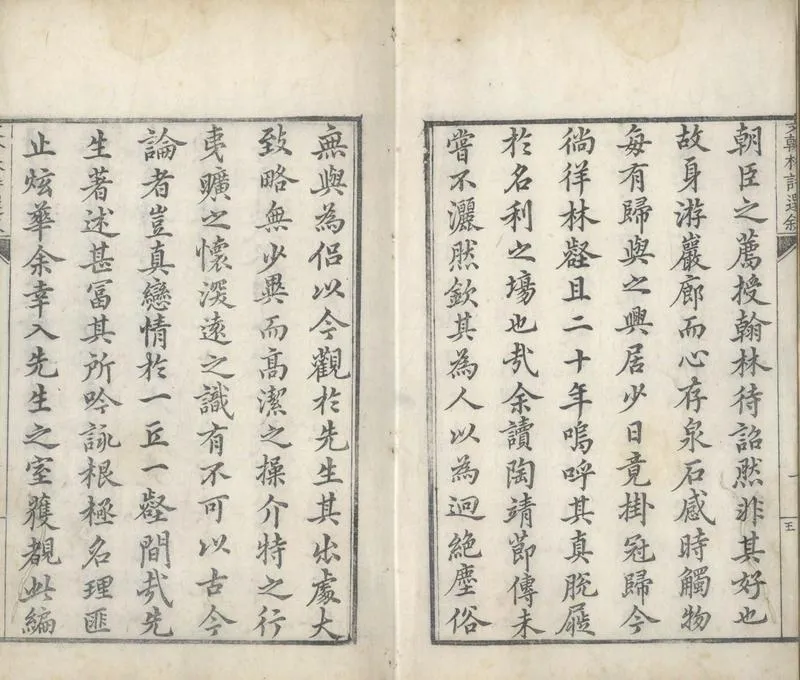 朝臣之薦授翰林待詔然非其好也
故身游巖廊而心存泉石感時觸物
每有歸與之興居少日竟掛冠歸今
徜徉林壑且二十年嗚呼其真脫屣
於名利之場也哉余讀陶靖節傳未
嘗不灑然欽其為人以為迥絕塵俗
無與為侶以今觀於先生其出處大
致略無少異而高潔之操介特之行
夷曠之懷深遠之識有不可以古今
論者豈真戀情於一丘一壑間哉先
生著述甚富其所吟詠根極名理匪
止炫華余幸入先生之室獲覩此編
翰林詩選敘
五